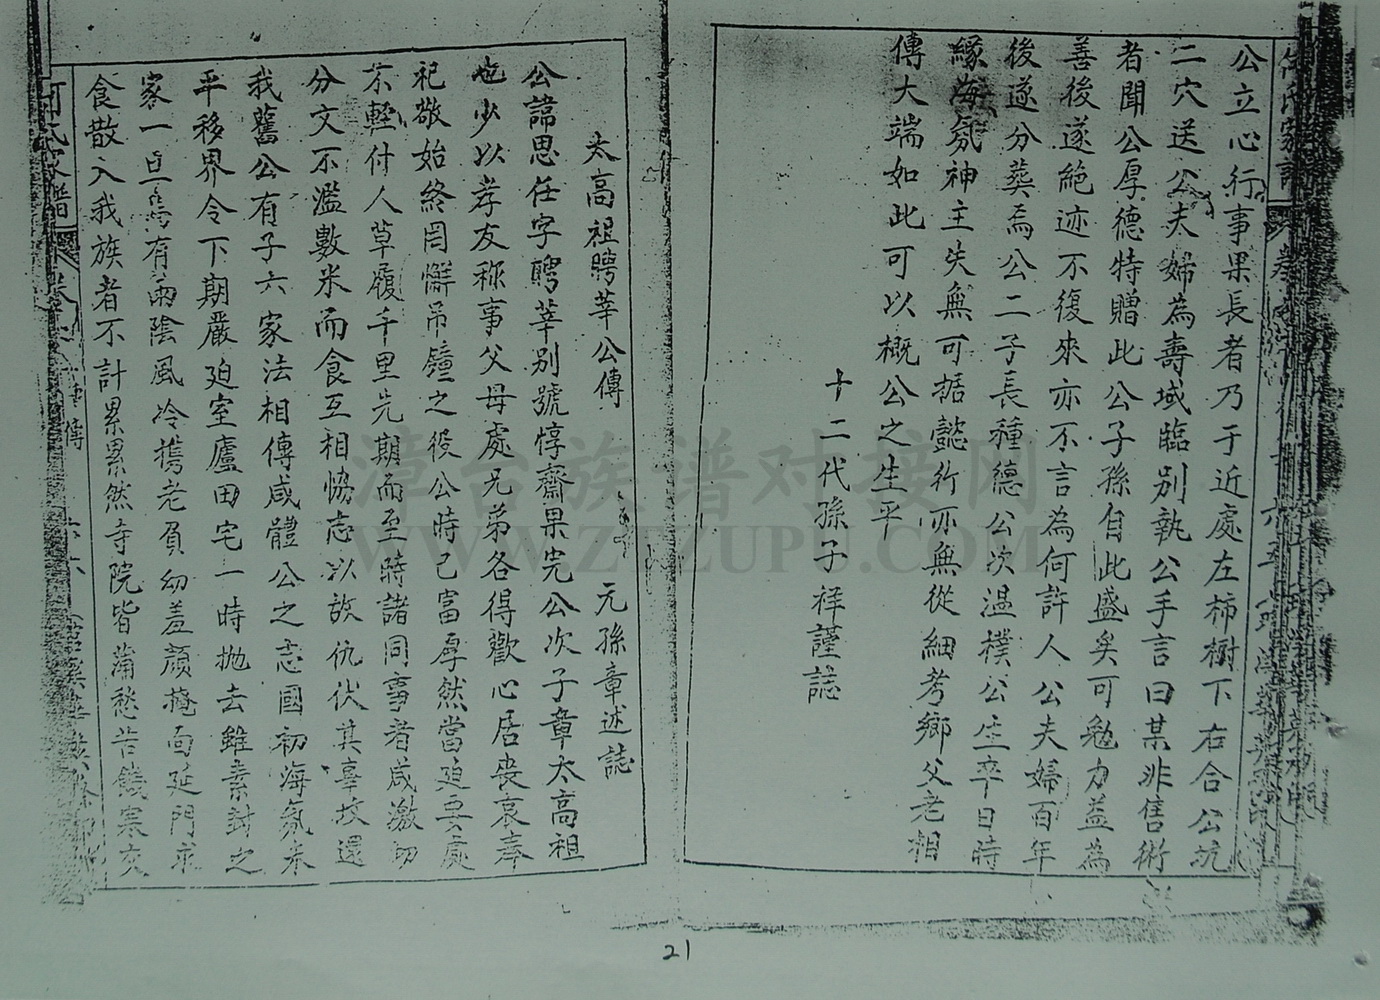 公立心行事果長者乃于近處左柿樹下右合公坑
二穴送公夫婦為壽域臨別執公手言曰某非售術
者聞公厚德特贈此公子孫自此盛矣可勉力益為
善後遂絶迹不復來亦不言為何許人公夫婦百年
後遂分葬焉公二子長種德公次温樸公生卒日時
緣海氛神主失無可据懿行亦無從細考鄉父老相
傳大端如此可以概公之生平
十二代孫子祥謹誌
太高祖聘莘公傳 元孫章述誌
公諱思任字聘莘别號惇齋果完公次子章太高祖
也少以孝友称事父母處兄弟各得歡心居喪哀奉
祀敬始終罔懈吊鐘之役公時已富厚然當迫要處
不輕付人草履千里先期而至時諸同事者咸激切
分文不濫數米而食互相恊志以故仇伏其辜坟還
我舊公有子六家法相傳咸體公之志國初海氛未
平移界令下期嚴迫室廬田宅一時抛去雖素封之
家一旦焉有雨陰風冷携老負幼羞顔掩面延門求
食散入我族者不計累累然寺院皆蒲愁苦饑寒交
漳台族谱对接网
WWW.ZTZUPU.COM
21